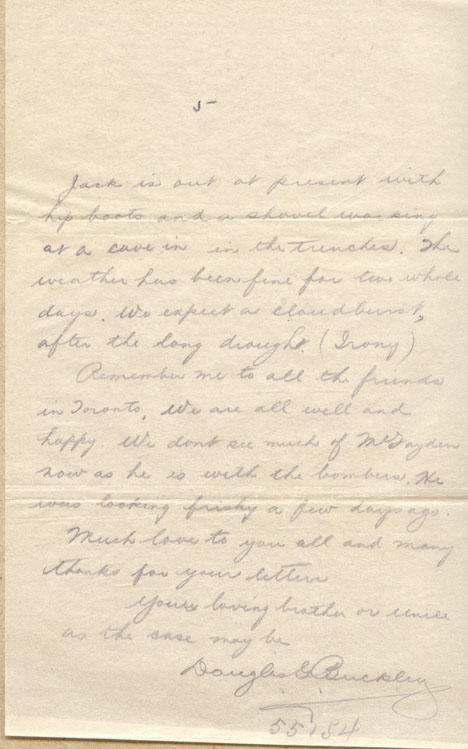 5
Jack is out at present with
hip boots and a shovel working
at a cave in in the trenches. The
weather has been fine for two whole
days. We expect a cloudburst,
after the long drought. (Irony)
Remember me to all the friends
in Toronto. We are all well and
happy. We dont see much of McFayden
now as he is with the bombers. He
was looking frisky a few days ago.
Much love to you all and many
thanks for your letters
Yours loving brother or uncle
as the case may be
Douglas G Buckley
55154